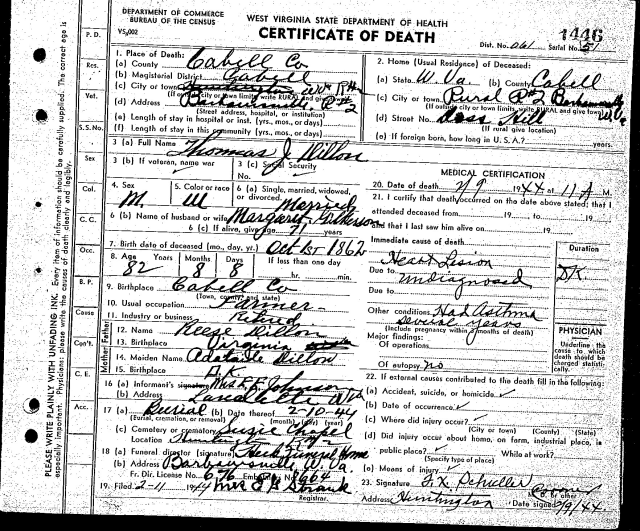 DEPARTMENT OF COMMERCE
BUREAU OF THE CENSUS
WEST VIRGINIA STATE DEPARTMENT OF HEALTH
VS.002
CERTIFICATE OF DEATH
1446
Dist. No. 061 Serial No. 51
P.D.
Res.
Vet.
S.S. No.
Sex
Col.
C. C.
Occ.
B. P.
Cause
Con't.
C. E.
Acc.
PLEASE WRITE PLAINLY WITH UNFADING INK. Every item of information should be carefully supplied. The correct age is
especially important. Physicians: please write the causes of death clearly and legibly.
1. Place of Death:
(a) County Cabell Co
(b) Magisterial District Cabell
(c) City or town
(If outside city or town limits, write RURAL and give town)
(d) Address Barboursville, R#2
(Street address, hospital, or institution)
(e) Length of stay in hospital or inst. (yrs., mos., or days)
(f) Length of stay in this community (yrs., mos., or days)
2. Home (Usual Residence) of Deceased:
(a) State W. Va. (b) County Cabell
(c) City or town Rural R#2 Barboursville W. Va
(If outside city or town limits, write RURAL and give town)
(d) Street No. Doss Hill
(If rural give location)
(e) If foreign born, how long in U.S.A.? years.
3 (a) Full Name Thomas J Dillon
3 (b) If veteran, name war
3 (c) Social Security No.
4. Sex M.
5. Color or race W
6 (a) Single, married, widowed, or divorced. Married
6 (b) Name of husband or wife Margaret
6 (c) If alive, give age 71 years
7. Birth date of deceased (mo., day, yr.) Oct 1st 1862
8. Age 82 Years 8 Months 8 Days If less than one day hr. min.
9. Birthplace Cabell Co
(Town, county and state)
10. Usual occupation Farmer
11. Industry or business Retired
Father
12. Name Reese Dillon
13. Birthplace Virginia
Mother
14. Maiden Name Adalaide Dillon
15. Birthplace D.K
16 (a) Informant's signature Mrs. Johnson
(b) Address
17 (a) Burial (b) Date thereof 2-10-44
(Burial, cremation, or removal) (month) (day) (year)
(c) Cemetery or crematory Susie Chapel
Location Huntington
18 (a) Funeral director (signature) Heck Funeral Home
(b) Address Barboursville W. Va.
Fr. Dir. License No. 676 Embalmer 8664
19. Filed 2-11 1944 Mrs E B Strank
Registrar.
MEDICAL CERTIFICATION
20. Date of death 2/9 1944 at 11 A M.
21. I certify that death occurred on the above date stated; that I
attended deceased from 19 to 19
and that I last saw him alive on 19
Immediate cause of death
Duration
Heart Lesion
Due to
Undiagnosed
D.K.
Due to
Other conditions Had Asthma
several years
(Include pregnancy within 3 months of death)
Major findings:
Of operations
Of autopsy no
PHYSICIAN
Underline the cause to which death should be charged statistically.
22. If external causes contributed to the death fill in the following:
(a) Accident, suicide, or homicide
(b) Date of occurrence
(c) Where did injury occur?
(City or town) (County) (State)
(d) Did injury occur about home, on farm, industrial place, in
public place? While at work?
(Specify type of place)
(e) Means of injury
23. Signature F. X. Schuller
Coroner
M. D. or other
23. Address Huntington Date signed 2/9/44